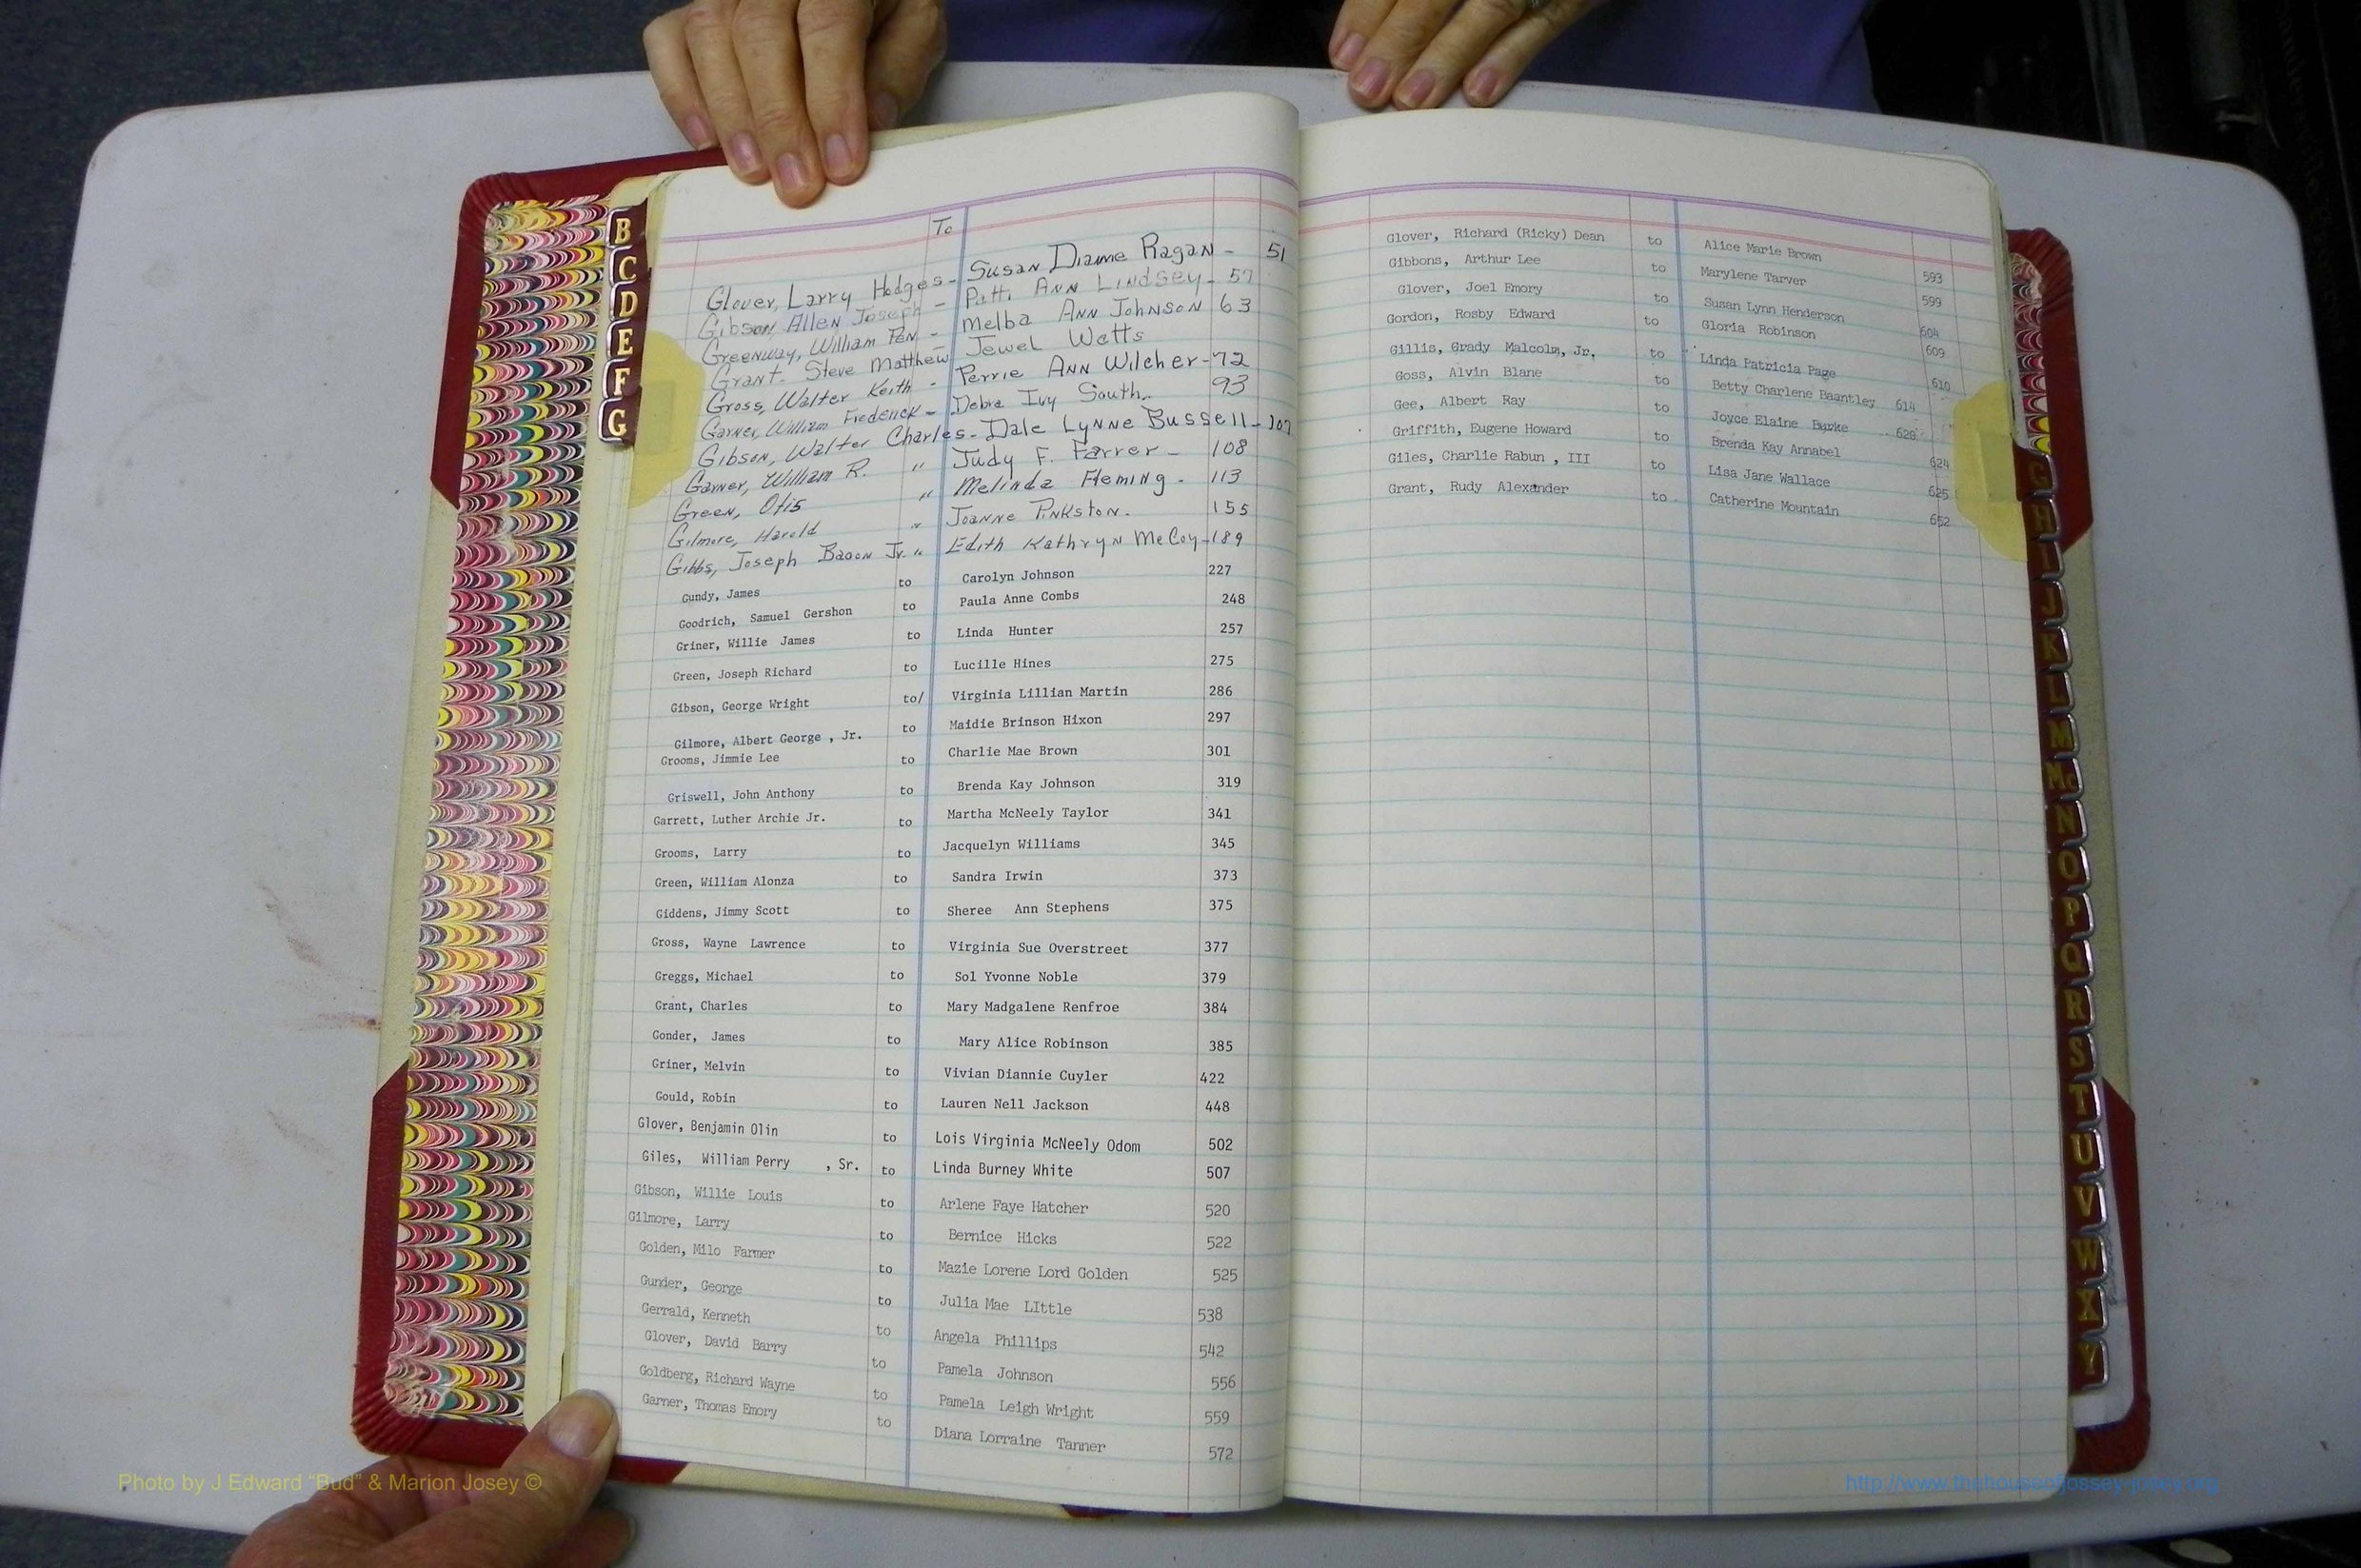 B
C
D
E
F
G
To
Glover, Larry Hodges - Susan Dianne Ragan - 51
Gibson, Allen Joseph - Patti Ann Lindsey - 57
Greenway, William Pen - Melba Ann Johnson 63
Grant. Steve Matthew Jewel Watts
Gross, Walter Keith - Perrie Ann Wilcher - 72
Garner, William Frederick - Debra Ivy South. 93
Gibson, Walter Charles - Dale Lynne Bussell - 107
Garner, William R. " Judy F. Farrer - 108
Green, Otis " Melinda Fleming - 113
Gilmore, Harold " Joanne Pinkston. 155
Gibbs, Joseph Bacon Jr. " Edith Kathryn McCoy - 189
Gundy, James to Carolyn Johnson 227
Goodrich, Samuel Gershon to Paula Anne Combs 248
Griner, Willie James to Linda Hunter 257
Green, Joseph Richard to Lucille Hines 275
Gibson, George Wright to/ Virginia Lillian Martin 286
Gilmore, Albert George , Jr. to Maidie Brinson Hixon 297
Grooms, Jimmie Lee to Charlie Mae Brown 301
Griswell, John Anthony to Brenda Kay Johnson 319
Garrett, Luther Archie Jr. to Martha McNeely Taylor 341
Grooms, Larry to Jacquelyn Williams 345
Green, William Alonza to Sandra Irwin 373
Giddens, Jimmy Scott to Sheree Ann Stephens 375
Gross, Wayne Lawrence to Virginia Sue Overstreet 377
Greggs, Michael to Sol Yvonne Noble 379
Grant, Charles to Mary Madgalene Renfroe 384
Gonder, James to Mary Alice Robinson 385
Griner, Melvin to Vivian Diannie Cuyler 422
Gould, Robin to Lauren Nell Jackson 448
Glover, Benjamin Olin to Lois Virginia McNeely Odom 502
Giles, William Perry , Sr. to Linda Burney White 507
Gibson, Willie Louis to Arlene Faye Hatcher 520
Gilmore, Larry to Bernice Hicks 522
Golden, Milo Farmer to Mazie Lorene Lord Golden 525
Gunder, George to Julia Mae LIttle 538
Gerrald, Kenneth to Angela Phillips 542
Glover, David Barry to Pamela Johnson 556
Goldberg, Richard Wayne to Pamela Leigh Wright 559
Garner, Thomas Emory to Diana Lorraine Tanner 572
Glover, Richard (Ricky) Dean to Alice Marie Brown 593
Gibbons, Arthur Lee to Marylene Tarver 599
Glover, Joel Emory to Susan Lynn Henderson 604
Gordon, Rosby Edward to Gloria Robinson 609
Gillis, Grady Malcolm, Jr. to Linda Patricia Page 610
Goss, Alvin Blane to Betty Charlene Baantley 614
Gee, Albert Ray to Joyce Elaine Burke 620
Griffith, Eugene Howard to Brenda Kay Annabel 624
Giles, Charlie Rabun , III to Lisa Jane Wallace 625
Grant, Rudy Alexander to Catherine Mountain 652
G
H
I
J
K
L
M
Mc
N
O
P
Q
R
S
T
U
V
W
X
Y
Photo by J Edward “Bud” & Marion Josey ©
http://www.thehouseofjossey-josey.org